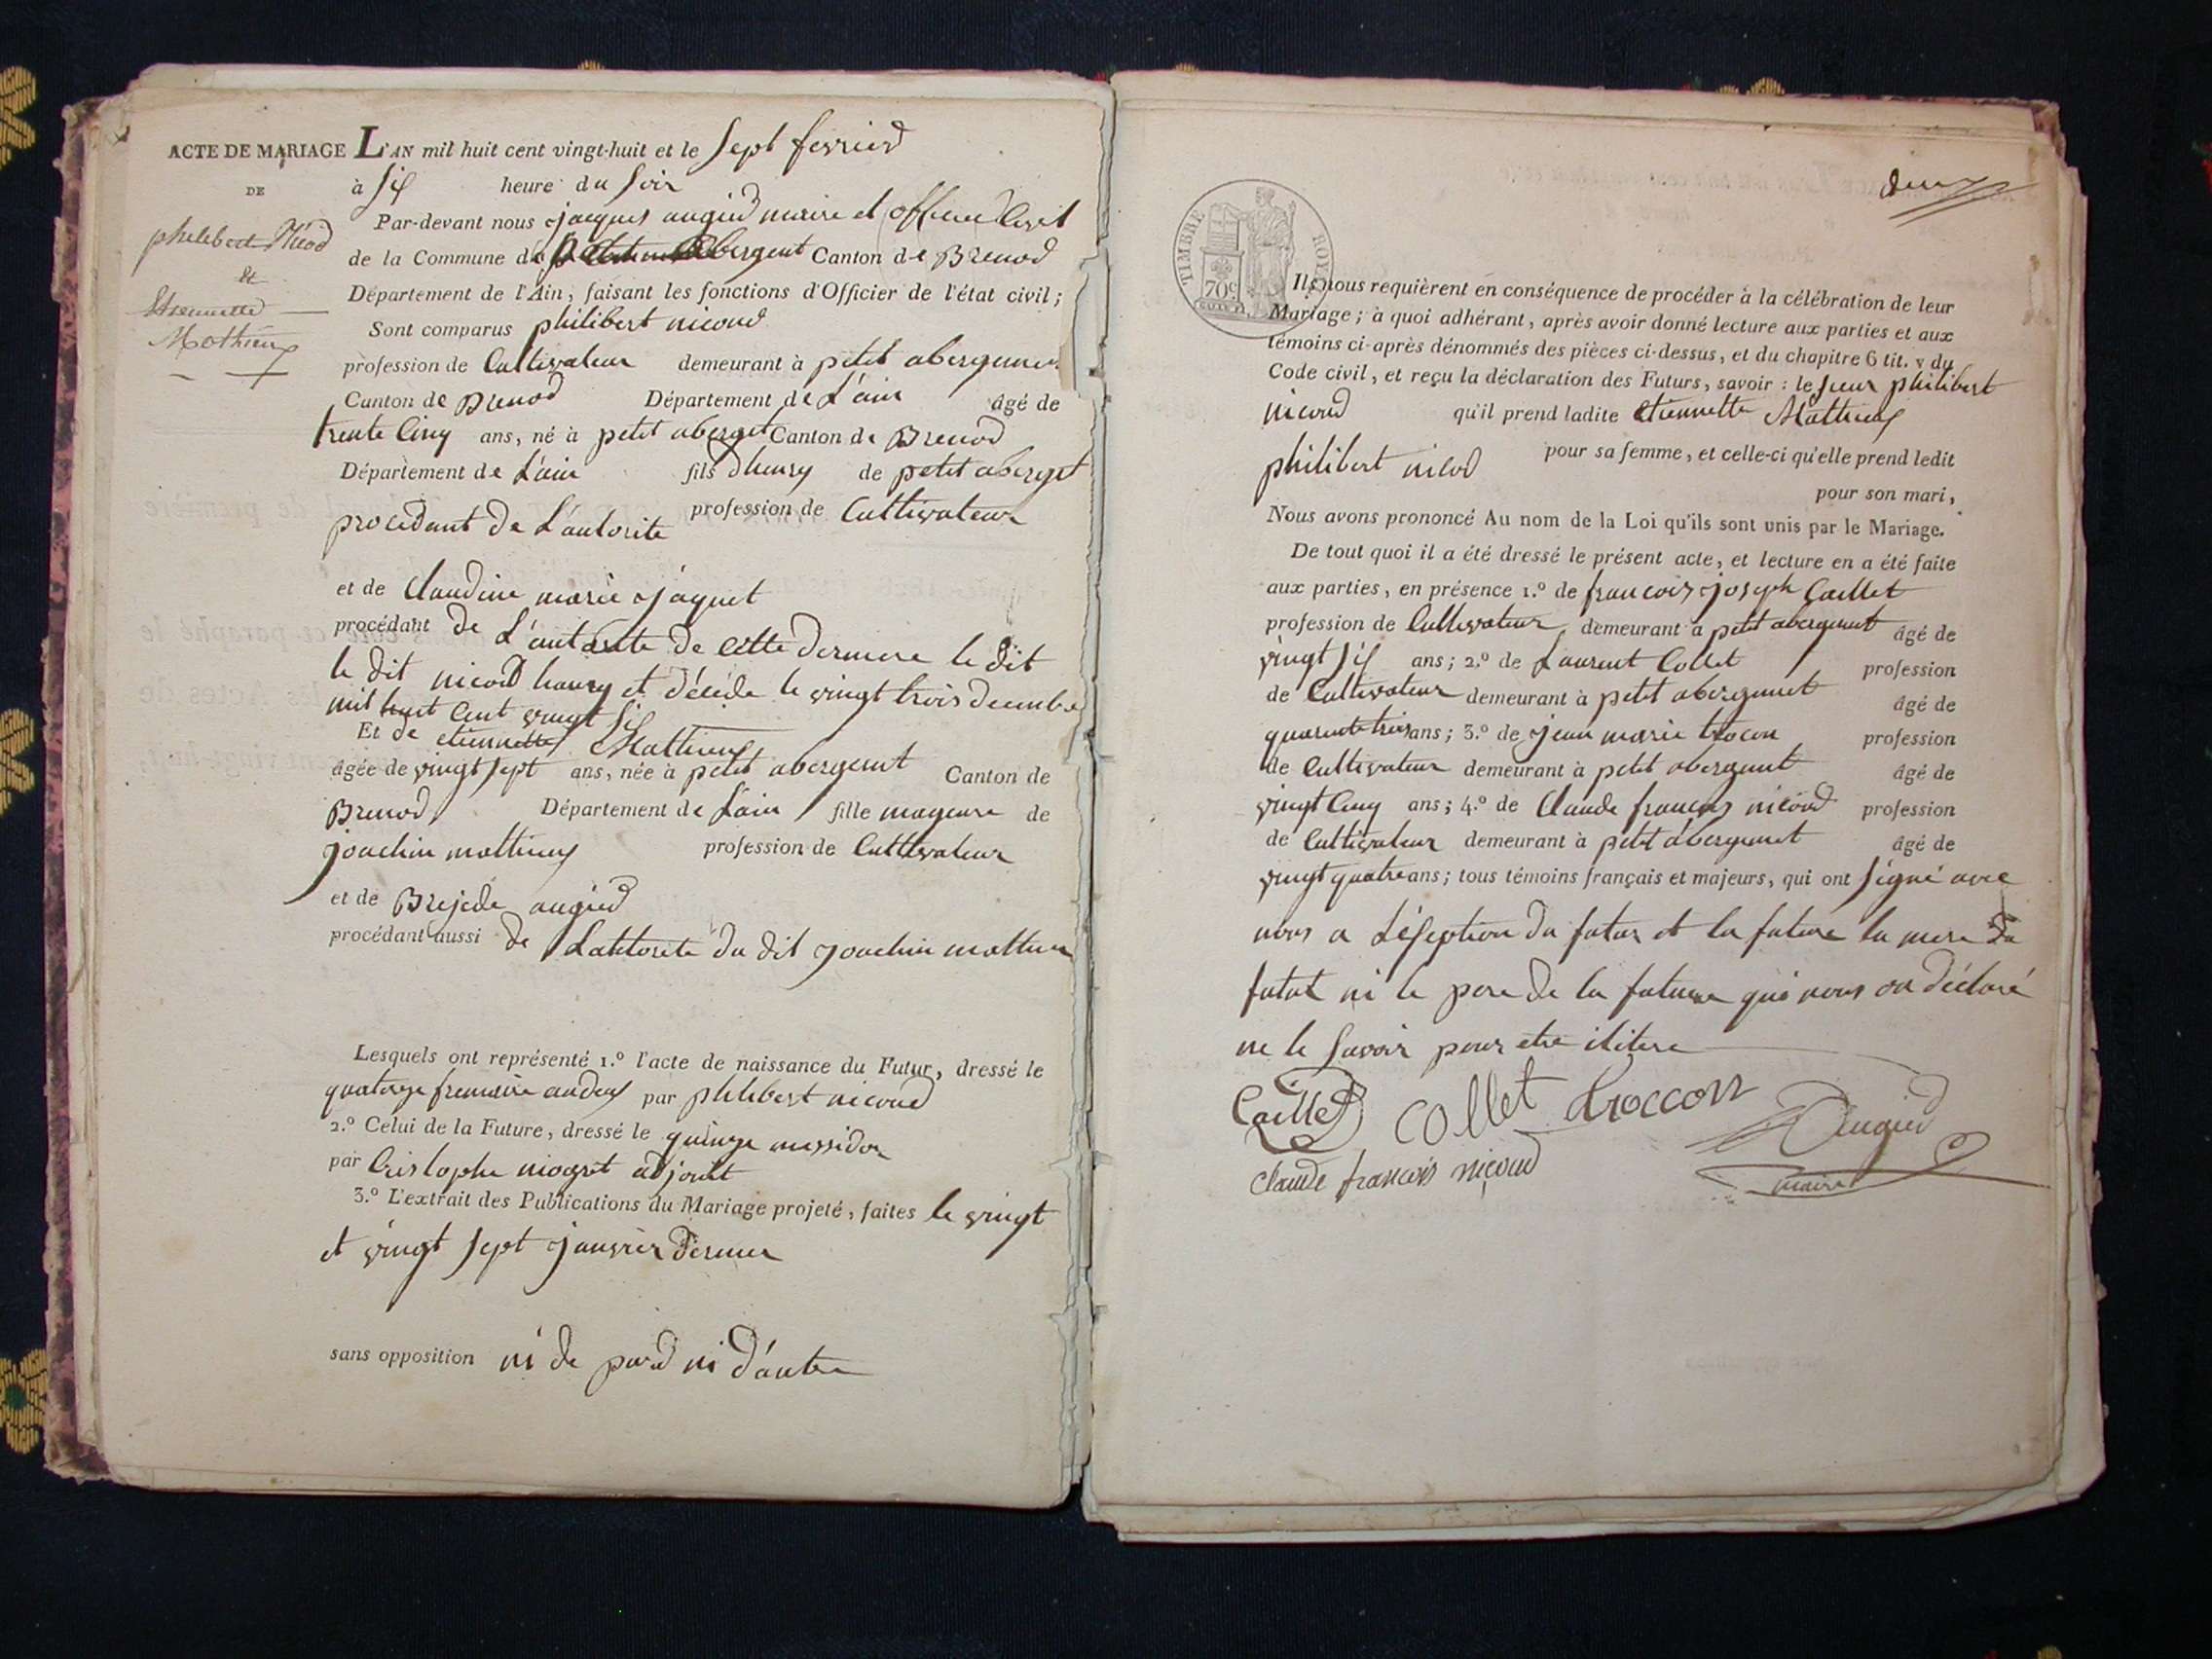 ACTE DE MARIAGE
DE
philibert Nicod
&
Etiennette
Mathieux
L'AN mil huit cent vingt-huit et le sept fevrier
à six heure du soir
Par-devant nous jacques augied maire et officier Civil
de la Commune de abergement Canton de Brenod
Département de l'Ain, faisant les fonctions d'Officier de l'état civil;
Sont comparus philibert nicoud
profession de Cultivateur demeurant à petit abergement
Canton de Brenod Département de L'ain âgé de
trente Cinq ans, né à petit aberget Canton de Brenod
Département de L'ain fils d'henry de petit aberget
profession de Cultivateur
procedant de L'autorite
et de Claudine marie jaquet
procédant de L'autorite de cette derniere le dit
le dit nicod henry et décéde le vingt trois decembre
mil huit Cent vingt six
Et de etiennette Mathieux
âgée de vingt sept ans, née à petit abergement Canton de
Brenod Département de Lain fille mageure de
joachin mathieux profession de Cultivateur
et de Brejede augied
procédant aussi de Lautorite du dit joachin mathieu
Lesquels ont représenté 1.º l'acte de naissance du Futur, dressé le
quatorze fremaire an deux par philibert nicoud
2.º Celui de la Future, dressé le quinze messidor
par Cristophe niogret adjoint
3.º L'extrait des Publications du Mariage projeté, faites le vingt
et vingt sept janvier dernier
sans opposition ni de pard ni d'autre
deux
TIMBRE ROYAL
70c
Ils nous requièrent en conséquence de procéder à la célébration de leur
Mariage; à quoi adhérant, après avoir donné lecture aux parties et aux
témoins ci-après dénommés des pièces ci-dessus, et du chapitre 6 tit. v du
Code civil, et reçu la déclaration des Futurs, savoir: le sieur philibert
nicoud qu'il prend ladite etiennette Mathieux
pour sa femme, et celle-ci qu'elle prend ledit
philibert nicod pour son mari,
Nous avons prononcé Au nom de la Loi qu'ils sont unis par le Mariage.
De tout quoi il a été dressé le présent acte, et lecture en a été faite
aux parties, en présence 1.º de francois joseph Caillet
profession de Cultivateur demeurant à petit abergement âgé de
vingt six ans; 2.º de Laurent Collet profession
de Cultivateur demeurant à petit abergement âgé de
quarente trois ans; 3.º de jean marie trocon profession
de Cultivateur demeurant à petit abergement âgé de
vingt Cinq ans; 4.º de Claude francois nicoud profession
de Cultivateur demeurant à petit abergement âgé de
vingt quatre ans; tous témoins français et majeurs, qui ont signé avec
nous a L'éseption du futur et la future la mere du
futut ni le pere de la future qui nous on déclaré
ne le savoir pour etre ilitere
Caillet Collet troccon Augied
claude francois niçoud maire